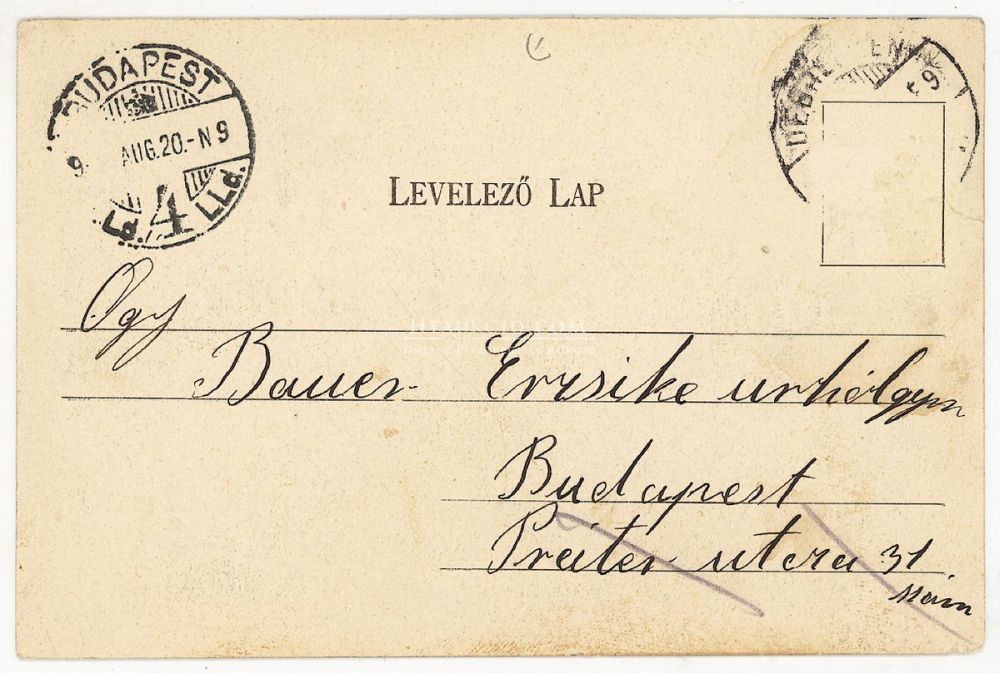 BUDAPEST
9. AUG.20.-N 9
4
LEVELEZŐ LAP
Ogy
Bauer Erzsike urhölgynek
Budapest
Práter utcza 31